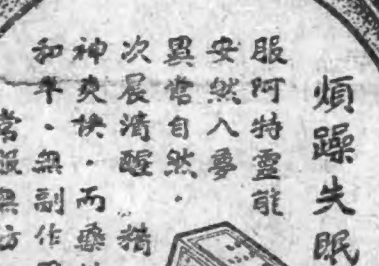 煩躁失眠
服阿特靈能
安然入夢
異常自然·
次晨清醒 精
神爽快·而藥
和平·無副作
常服無妨